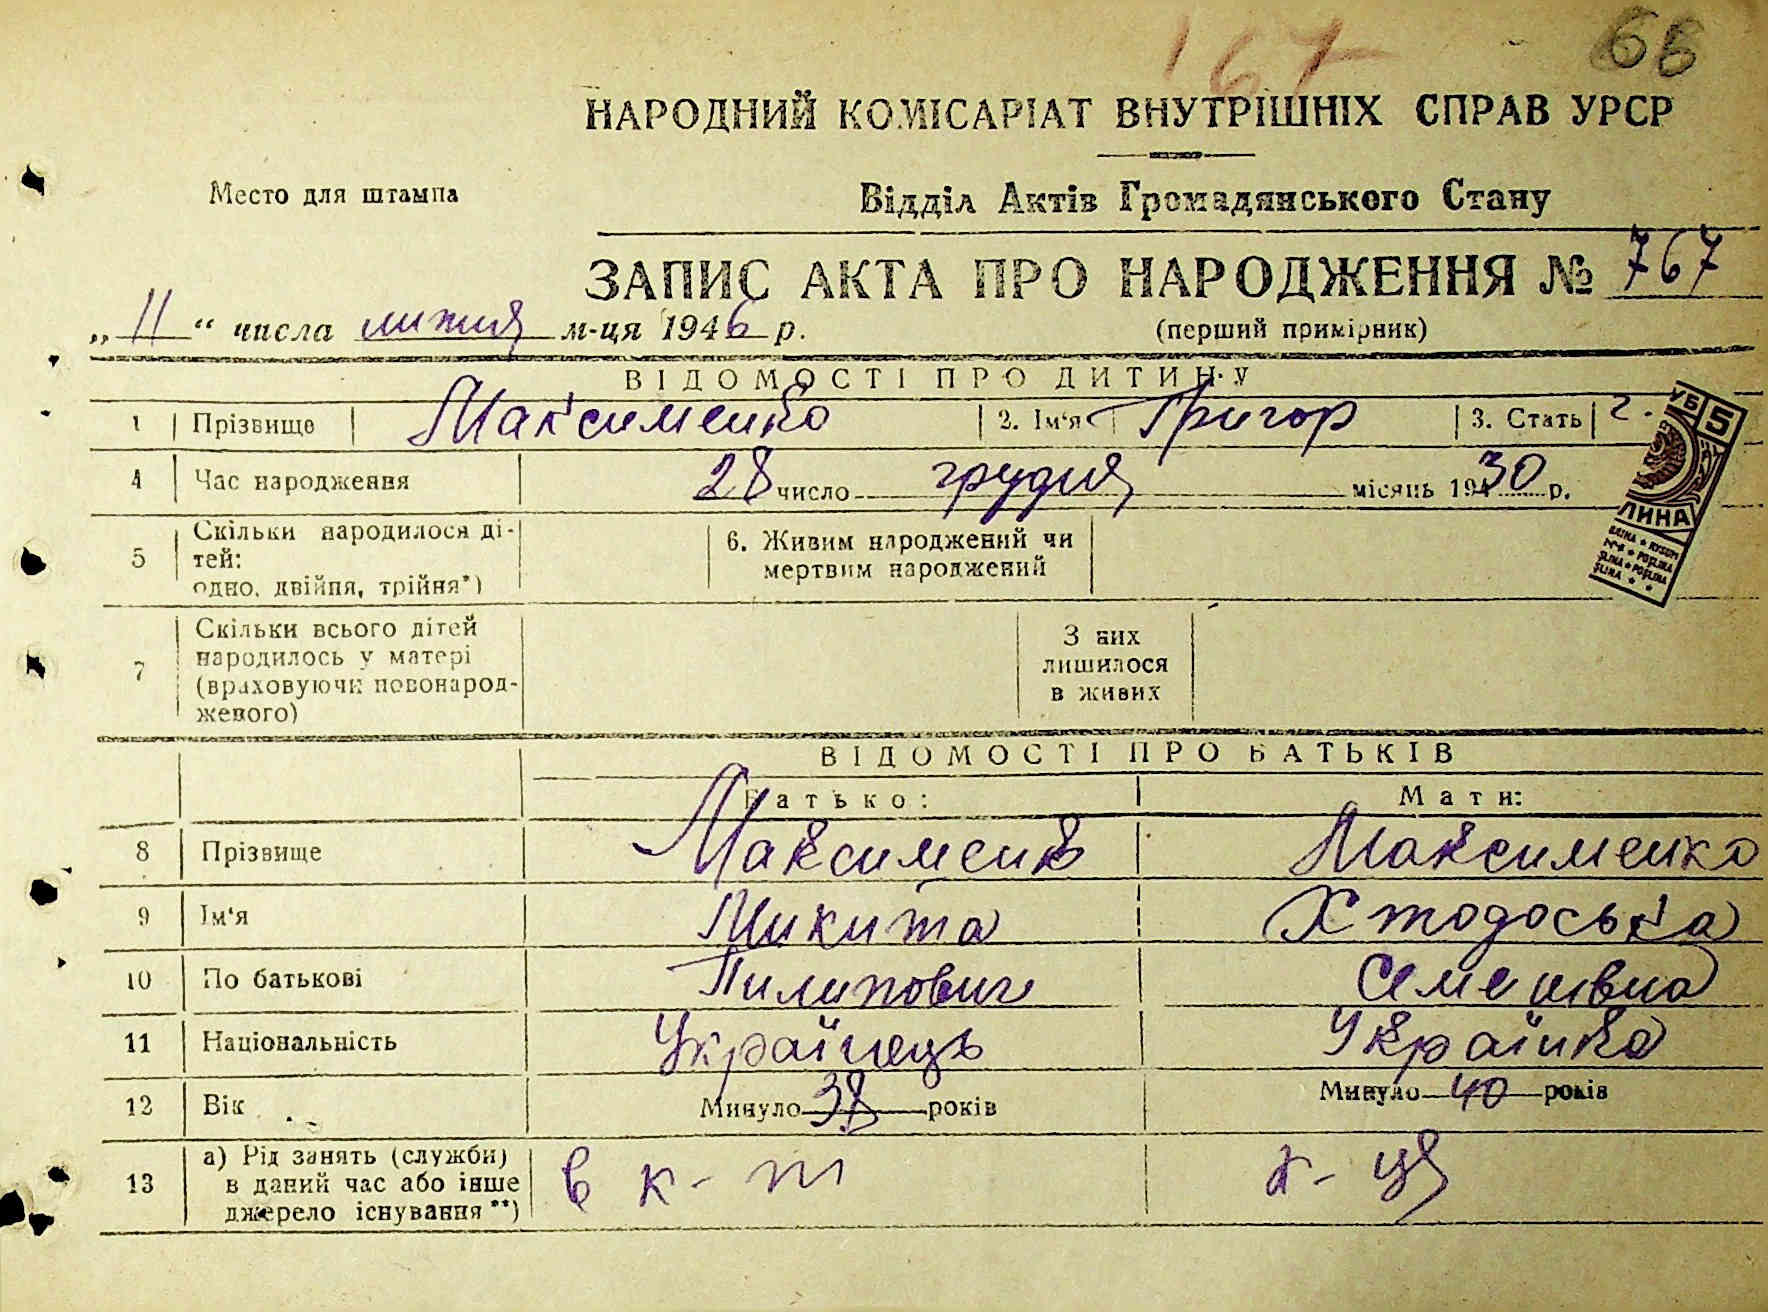 167 66
НАРОДНИЙ КОМІСАРІАТ ВНУТРІШНІХ СПРАВ УРСР
Место для штампа
Відділ Актів Громадянського Стану
ЗАПИС АКТА ПРО НАРОДЖЕННЯ № 767
„ 11 “ числа липня м-ця 1946 р. (перший примірник)
ВІДОМОСТІ ПРО ДИТИНУ
1 Прізвище Максименко 2. Ім'я Григор 3. Стать ч.
УБ 5
4 Час народження 28 число грудня місяць 1930 р.
ЛИНА
5 Скільки народилося ді-
тей:
одно, двійня, трійня*)
6. Живим народжений чи
мертвим народжений
7 Скільки всього дітей
народилось у матері
(враховуючи новонарод-
женого)
З них
лишилося
в живих
ВІДОМОСТІ ПРО БАТЬКІВ
Батько: Мати:
8 Прізвище Максименко Максименко
9 Ім'я Микита Хтодоська
10 По батькові Пилипович Семенівна
11 Національність Українець Українка
12 Вік Минуло 38 років Минуло 40 років
13 а) Рід занять (служби)
в даний час або інше
джерело існування**)
в к-т к-ця